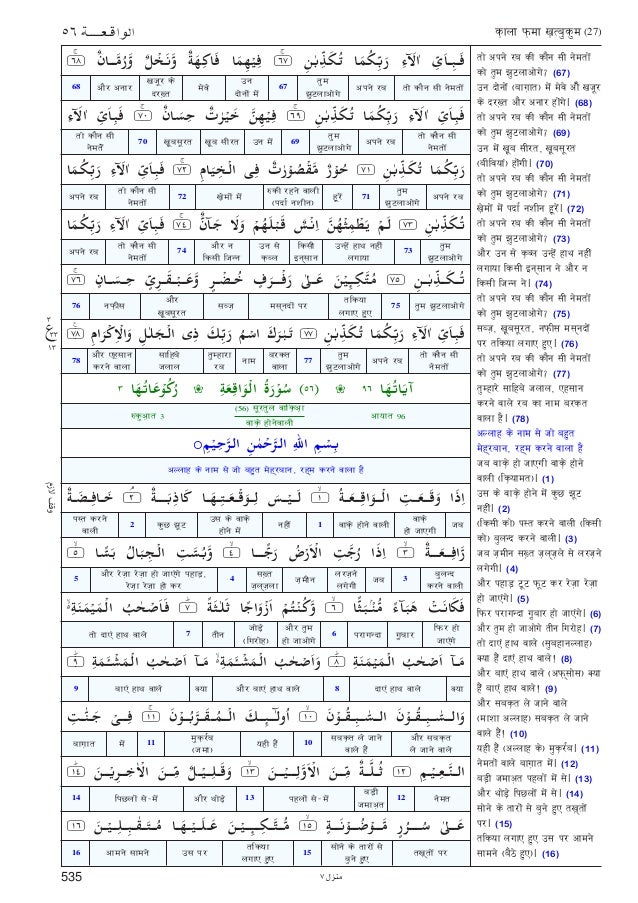 الواقعـــة ٥٦
क़ाला फ़मा ख़त्बुकुम (27)
فَبِاَيِّ اٰلَآءِ رَبِّكُمَا تُكَذِّبٰنِ ﴿٦٧﴾ فِيْهِمَا فَاكِهَةٌ وَّنَخْلٌ وَّرُمَّانٌ ﴿٦٨﴾
तो कौन सी नेमतों | अपने रब | तुम झुटलाओगे | 67 | उन दोनों में | मेवे | खजूर के दरख़्त | और अनार | 68
فَبِاَيِّ اٰلَآءِ رَبِّكُمَا تُكَذِّبٰنِ ﴿٦٩﴾ فِيْهِنَّ خَيْرٰتٌ حِسَانٌ ﴿٧٠﴾ فَبِاَيِّ اٰلَآءِ
तो कौन सी नेमतों | अपने रब | तुम झुटलाओगे | 69 | उन में | खूब सीरत | खूबसूरत | 70 | तो कौन सी नेमतें
رَبِّكُمَا تُكَذِّبٰنِ ﴿٧١﴾ حُوْرٌ مَّقْصُوْرٰتٌ فِي الْخِيَامِ ﴿٧٢﴾ فَبِاَيِّ اٰلَآءِ رَبِّكُمَا
अपने रब | तुम झुटलाओगे | 71 | हूरें | रुकी रहने वाली (पर्दा नशीन) | ख़ेमों में | 72 | तो कौन सी नेमतों | अपने रब
تُكَذِّبٰنِ ﴿٧٣﴾ لَمْ يَطْمِثْهُنَّ اِنْسٌ قَبْلَهُمْ وَلَا جَآنٌّ ﴿٧٤﴾ فَبِاَيِّ اٰلَآءِ رَبِّكُمَا
तुम झुटलाओगे | 73 | उन्हें हाथ नहीं लगाया | किसी इन्सान | उन से क़ब्ल | और न किसी जिन्न | 74 | तो कौन सी नेमतों | अपने रब
تُكَذِّبٰنِ ﴿٧٥﴾ مُتَّكِـِٕيْنَ عَلٰى رَفْرَفٍ خُضْرٍ وَّعَبْقَرِيٍّ حِسَانٍ ﴿٧٦﴾
तुम झुटलाओगे | 75 | तकिया लगाए हुए | मसनदों पर | सब्ज़ | और खूबसूरत | नफ़ीस | 76
فَبِاَيِّ اٰلَآءِ رَبِّكُمَا تُكَذِّبٰنِ ﴿٧٧﴾ تَبٰرَكَ اسْمُ رَبِّكَ ذِي الْجَلٰلِ وَالْاِكْرَامِ ﴿٧٨﴾
तो कौन सी नेमतों | अपने रब | तुम झुटलाओगे | 77 | बरकत वाला | नाम | तुम्हारा रब | साहिबे जलाल | और एहसान करने वाला | 78
اٰيَاتُهَا ٩٦ ❀ (٥٦) سُوْرَةُ الْوَاقِعَةِ ❀ رُكُوْعَاتُهَا ٣
आयात 96 | (56) सूरतुल वाक़िआ़ वाक़े होनेवाली | रुकुआ़त 3
بِسْمِ اللّٰهِ الرَّحْمٰنِ الرَّحِيْمِ
अल्लाह के नाम से जो बहुत मेहरबान, रहम करने वाला है
اِذَا وَقَعَتِ الْوَاقِعَةُ ﴿١﴾ لَيْسَ لِوَقْعَتِهَا كَاذِبَةٌ ﴿٢﴾ خَافِضَةٌ
जब | वाक़े हो जाएगी | वाक़े होने वाली | 1 | नहीं | उस के वाक़े होने में | कुछ झूट | 2 | पस्त करने वाली
رَّافِعَةٌ ﴿٣﴾ اِذَا رُجَّتِ الْاَرْضُ رَجًّا ﴿٤﴾ وَّبُسَّتِ الْجِبَالُ بَسًّا ﴿٥﴾
बुलन्द करने वाली | 3 | जब | लरज़ने लगेगी | ज़मीन | सख़्त ज़लज़ला | 4 | और रेज़ा रेज़ा हो जाएंगे पहाड़, रेज़ा रेज़ा हो कर | 5
فَكَانَتْ هَبَآءً مُّنْۢبَثًّا ﴿٦﴾ وَّكُنْتُمْ اَزْوَاجًا ثَلٰثَةً ﴿٧﴾ فَاَصْحٰبُ الْمَيْمَنَةِ
फिर हो जाएंगे | गुबार | परागन्दा | 6 | और तुम हो जाओगे | जोड़े (गिरोह) | तीन | 7 | तो दाएं हाथ वाले
مَآ اَصْحٰبُ الْمَيْمَنَةِ ﴿٨﴾ وَاَصْحٰبُ الْمَشْـَٔمَةِ مَآ اَصْحٰبُ الْمَشْـَٔمَةِ ﴿٩﴾
क्या | दाएं हाथ वाले | 8 | और बाएं हाथ वाले | क्या | बाएं हाथ वाले | 9
وَالسّٰبِقُوْنَ السّٰبِقُوْنَ ﴿١٠﴾ اُولٰٓئِكَ الْمُقَرَّبُوْنَ ﴿١١﴾ فِيْ جَنّٰتِ
और सबक़त ले जाने वाले | सबक़त ले जाने वाले हैं | 10 | यही हैं | मुक़र्रब (जमा) | 11 | में | बाग़ात
النَّعِيْمِ ﴿١٢﴾ ثُلَّةٌ مِّنَ الْاَوَّلِيْنَ ﴿١٣﴾ وَقَلِيْلٌ مِّنَ الْاٰخِرِيْنَ ﴿١٤﴾
नेमत | 12 | बड़ी जमाअ़त | पहलों में से | 13 | और थोड़े | पिछलों से-में | 14
عَلٰى سُرُرٍ مَّوْضُوْنَةٍ ﴿١٥﴾ مُّتَّكِـِٕيْنَ عَلَيْهَا مُتَقٰبِلِيْنَ ﴿١٦﴾
तख़्तों पर | सोने के तारों से बुने हुए | 15 | तकिया लगाए हुए | उस पर | आमने सामने | 16
तो अपने रब की कौन सी नेमतों
को तुम झुटलाओगे? (67)
उन दोनों (बाग़ात) में मेवे और खजूर
के दरख़्त और अनार होंगे। (68)
तो अपने रब की कौन सी नेमतों
को तुम झुटलाओगे? (69)
उन में खूब सीरत, खूबसूरत
(बीवियां) होंगी। (70)
तो अपने रब की कौन सी नेमतों
को तुम झुटलाओगे? (71)
ख़ेमों में पर्दा नशीन हूरें। (72)
तो अपने रब की कौन सी नेमतों
को तुम झुटलाओगे? (73)
और उन से क़ब्ल उन्हें हाथ नहीं
लगाया किसी इन्सान ने और न
किसी जिन्न ने। (74)
तो अपने रब की कौन सी नेमतों
को तुम झुटलाओगे? (75)
सब्ज़, खूबसूरत, नफ़ीस मसनदों
पर तकिया लगाए हुए। (76)
तो अपने रब की कौन सी नेमतों
को तुम झुटलाओगे? (77)
तुम्हारे साहिबे जलाल, एहसान
करने वाले रब का नाम बरकत
वाला है। (78)
अल्लाह के नाम से जो बहुत
मेहरबान, रहम करने वाला है
जब वाक़े हो जाएगी वाक़े होने
वाली (क़ियामत)। (1)
उस के वाक़े होने में कुछ झूट
नहीं। (2)
(किसी को) पस्त करने वाली (किसी
को) बुलन्द करने वाली। (3)
जब ज़मीन सख़्त ज़लज़ले से लरज़ने
लगेगी। (4)
और पहाड़ टूट फूट कर रेज़ा रेज़ा
हो जाएंगे। (5)
फिर परागन्दा गुबार हो जाएंगे। (6)
और तुम हो जाओगे तीन गिरोह। (7)
तो दाएं हाथ वाले (सुबहानल्लाह)
क्या हैं दाएं हाथ वाले! (8)
और बाएं हाथ वाले (अफ़सोस) क्या
हैं बाएं हाथ वाले! (9)
और सबक़त ले जाने वाले
(माशा अल्लाह) सबक़त ले जाने
वाले हैं! (10)
यही हैं (अल्लाह के) मुक़र्रब। (11)
नेमतों वाले बाग़ात में। (12)
बड़ी जमाअ़त पहलों में से। (13)
और थोड़े पिछलों में से। (14)
सोने के तारों से बुने हुए तख़्तों
पर। (15)
तकिया लगाए हुए उस पर आमने
सामने (बैठे हुए)। (16)
٣
ع
٣٣
١٣
وقف لازم
535
منزل ٧